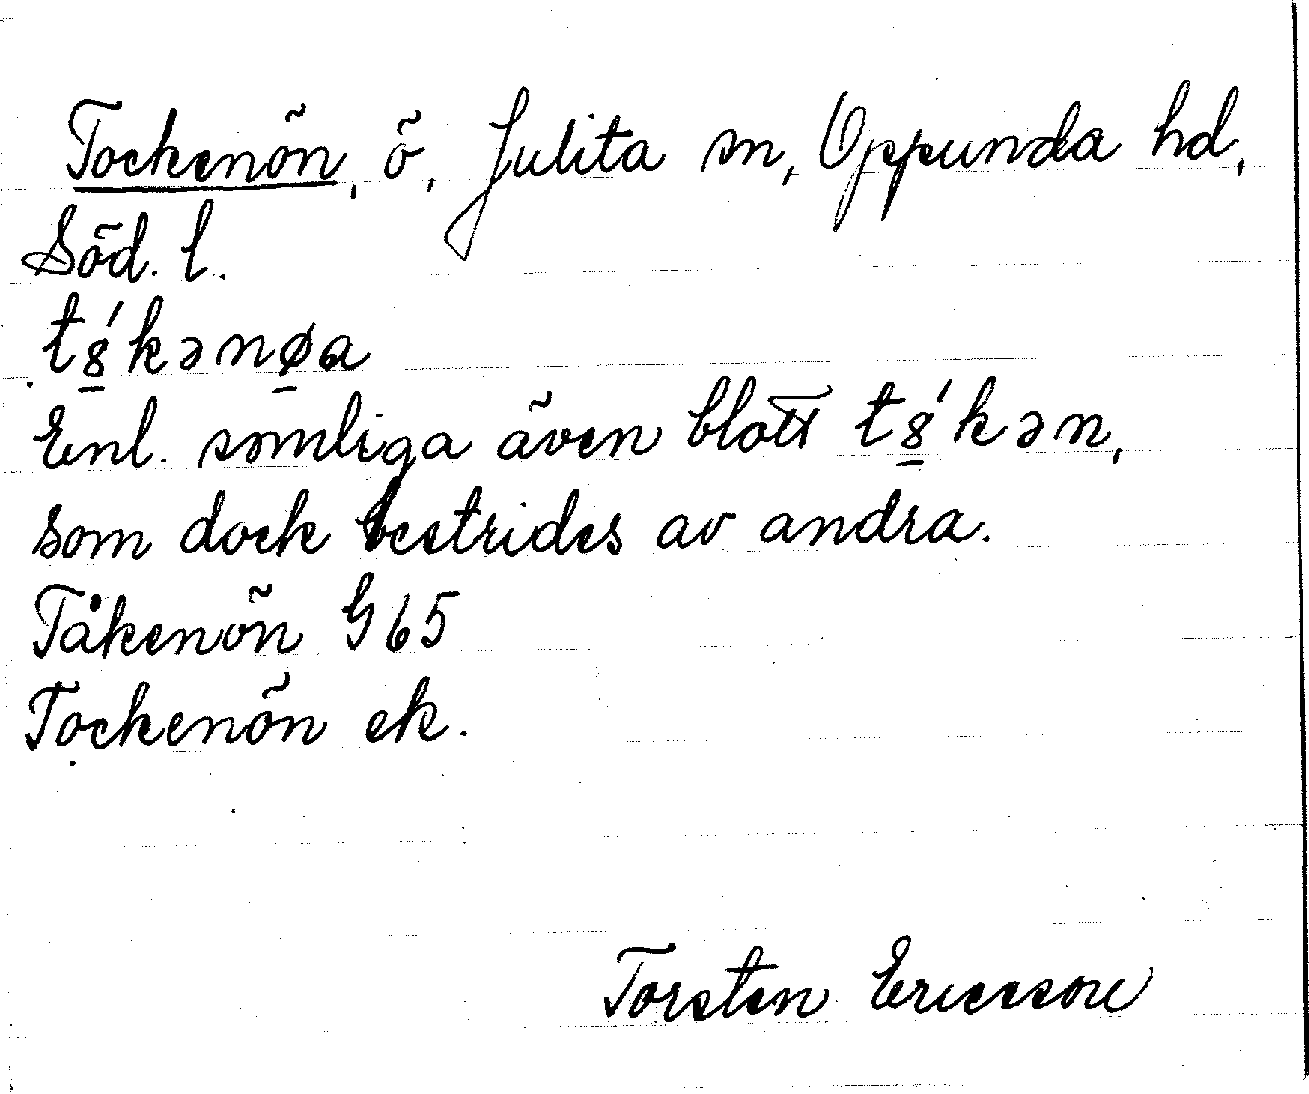 Tockenön, ö, Julita sn, Oppunda hd,
Söd. l.
tȣ̱́kənø̱a
Enl. somliga även blott tȣ̱́kən,
som dock bestrides av andra.
Tåkenön G65
Tockenön ek.
Torsten Ericsson